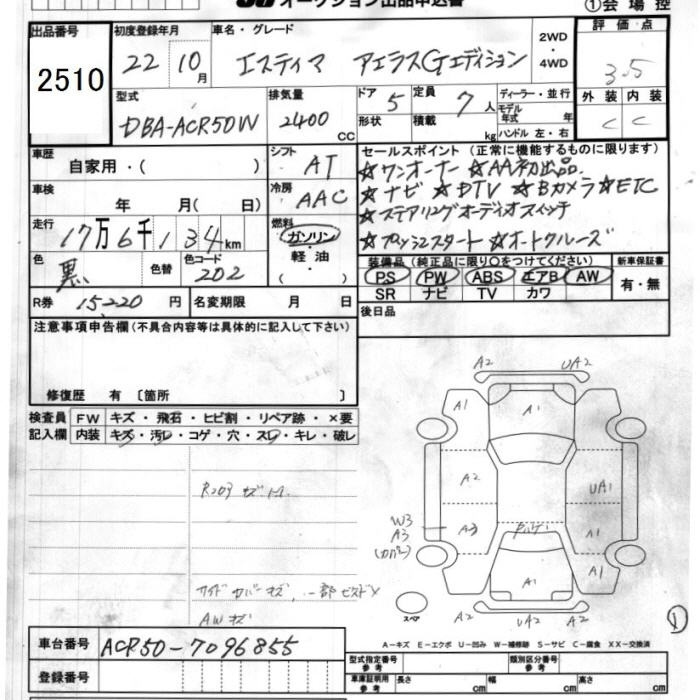 オークション出品申込書
①会場控
出品番号
2510
初度登録年月
22 10月
車名・グレード
エスティマ アエラスGエディション
2WD
・
4WD
評価点
3.5
型式
DBA-ACR50W
排気量
2400
CC
ドア
5
形状
定員
7人
積載
kg
ディーラー・並行
モデル
年式 年
ハンドル 左・右
外装 内装
C C
車歴
自家用・( )
シフト
AT
セールスポイント (正常に機能するものに限ります)
☆ワンオーナー ☆AA初出品
☆ナビ ☆DTV ☆Bカメラ☆ETC
☆ステアリングオーディオスイッチ
☆プッシュスタート ☆オートクルーズ
車検
年 月( 日)
冷房
AAC
走行
17万6千134km
燃料
ガソリン
・
軽油
・
( )
色
黒
色替
色コード
202
装備品 (純正品に限り○をつけてください)
PS PW ABS エアB AW
SR ナビ TV カワ
新車保証書
有・無
R券
15220円
名変期限 月 日
後日品
注意事項申告欄(不具合内容等は具体的に記入して下さい)
修復歴 有 〔箇所 〕
検査員
記入欄
FW キズ・飛石・ヒビ割・リペア跡・×要
内装 キズ・汚レ・コゲ・穴・スレ・キレ・破レ
A2 UA2
A1 A1
A2 UA1
W3
A3
(カバー)
A3 A1
A1 A1
スペア
A2 UA2 A2
①
AWキズ
A-キズ E-エクボ U-凹み W-補修跡 S-サビ C-腐食 XX-交換済
車台番号
ACR50-7096855
登録番号
型式指定番号
参考
類別区分番号
参考
車庫証明用
参考
長さ cm
幅 cm
高さ cm